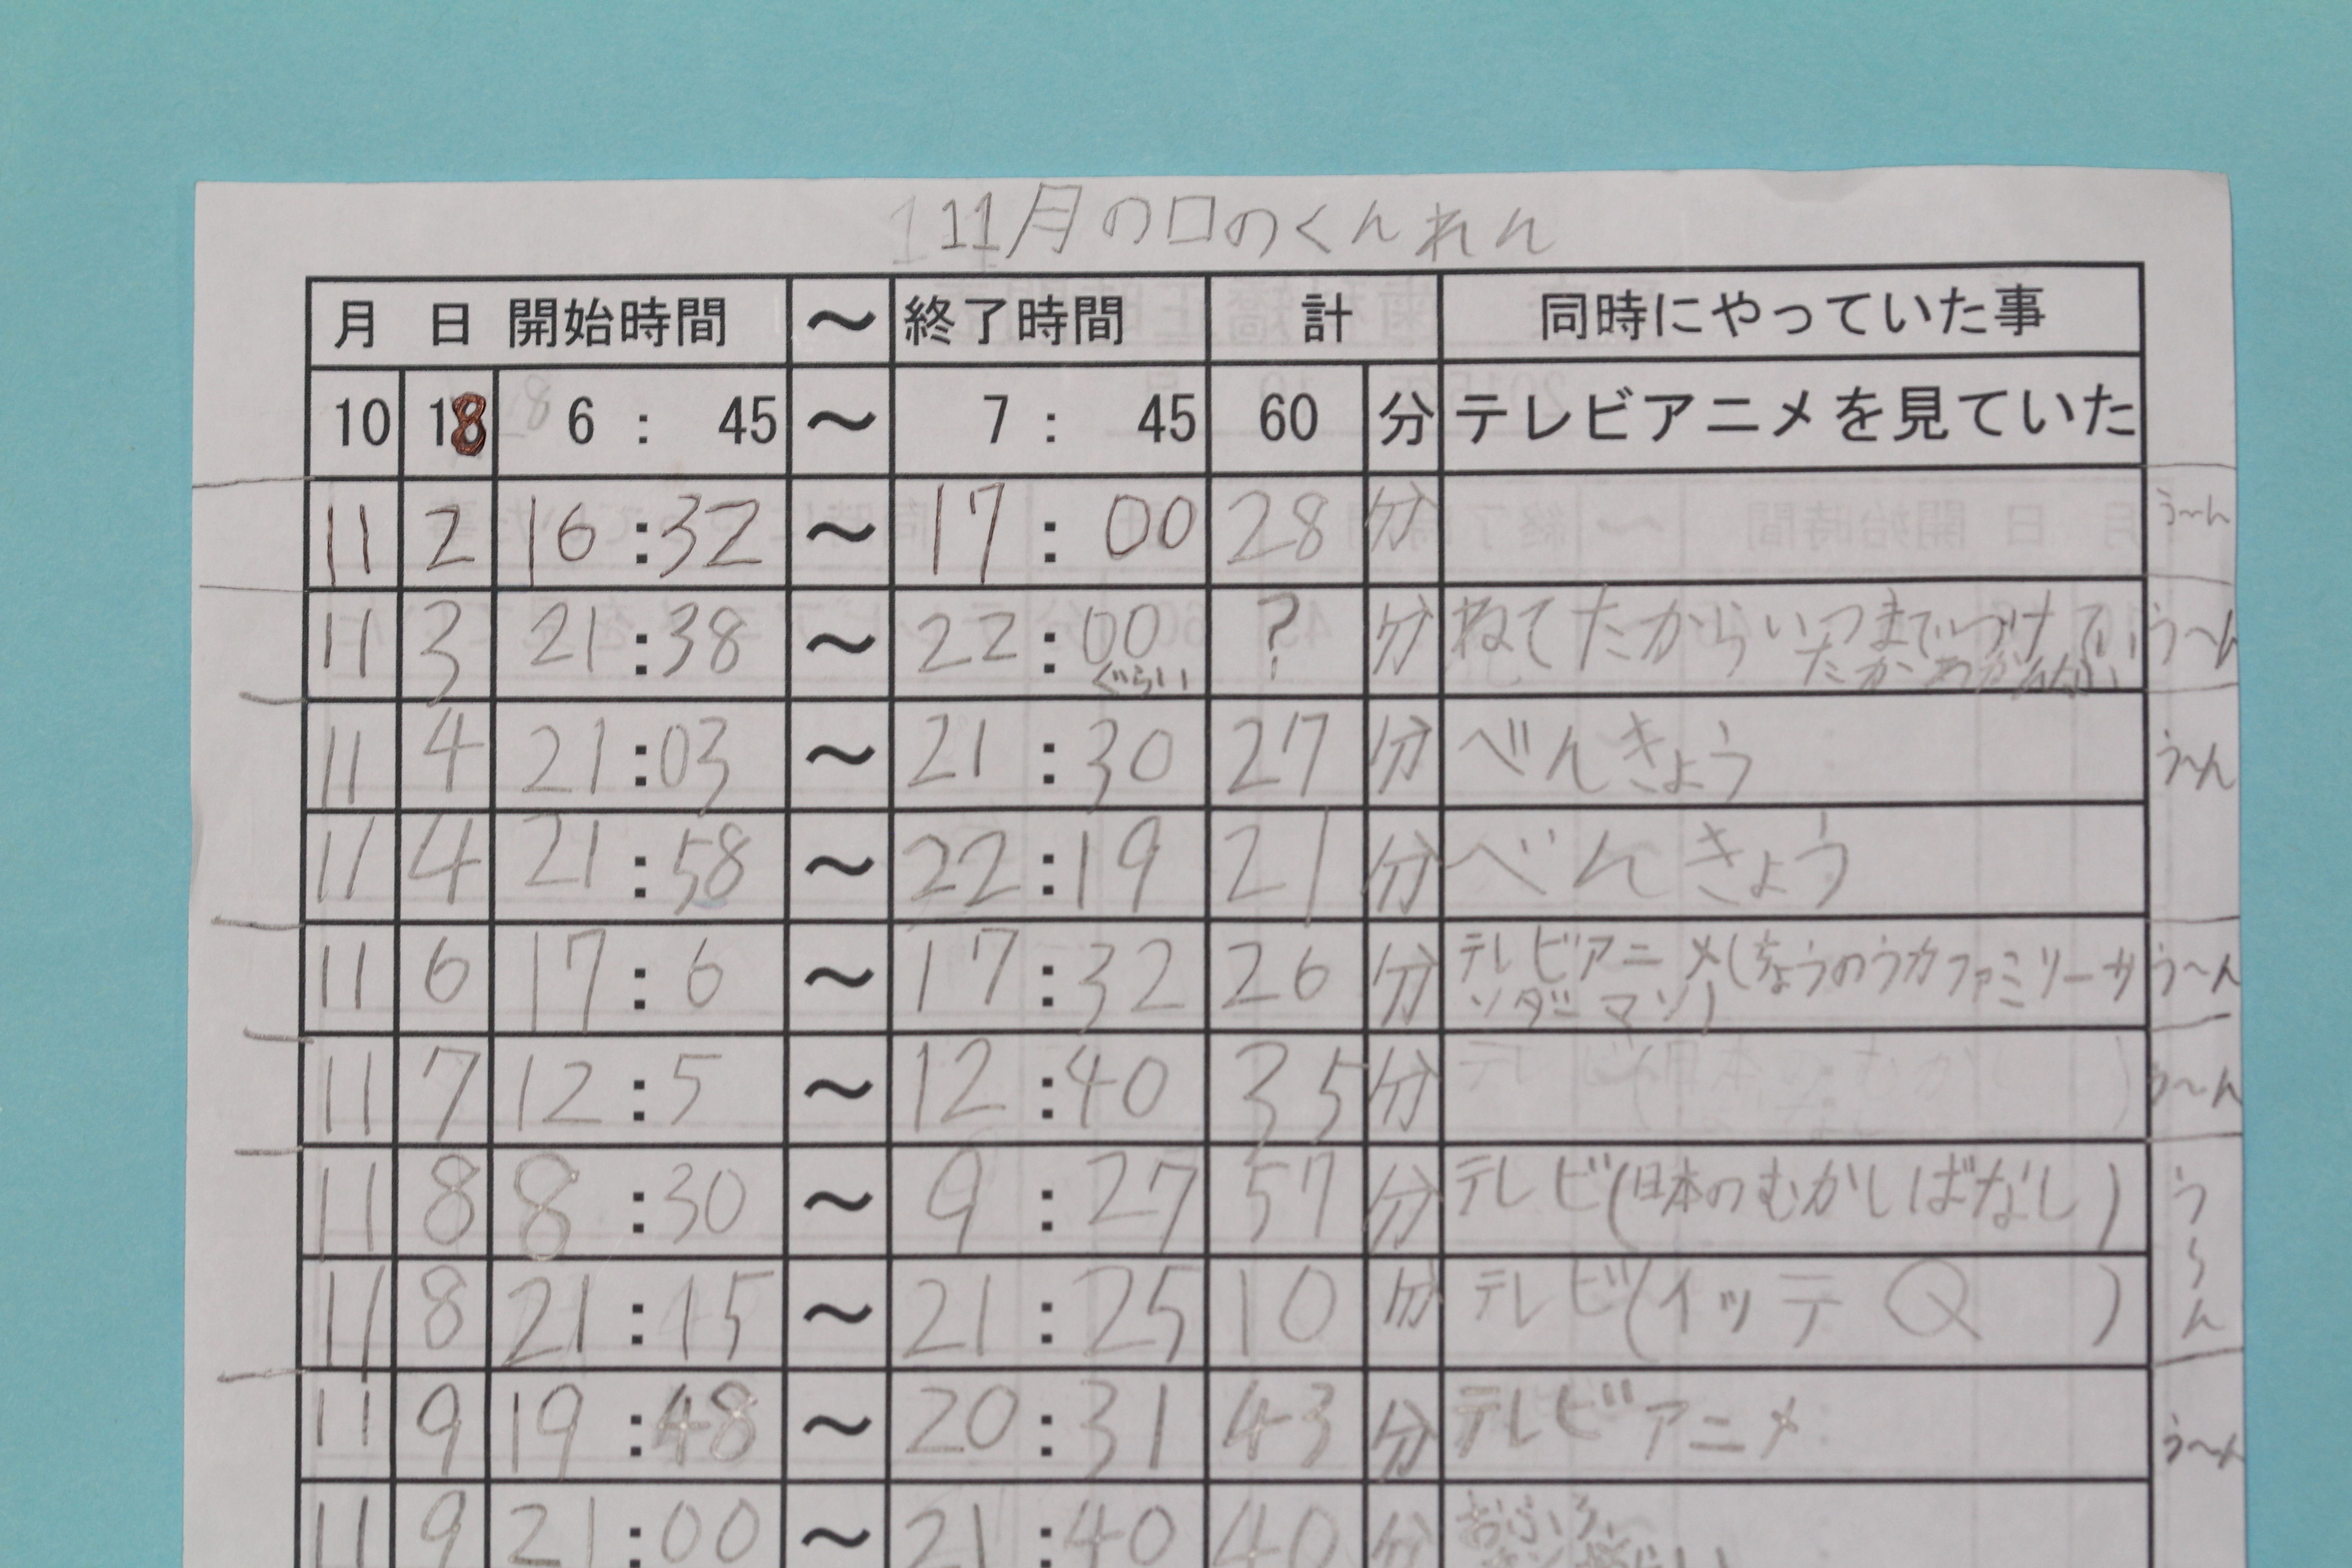 11月の口のくんれん
月 日 開始時間 ～ 終了時間 計 同時にやっていた事
10 18 6 : 45 ～ 7 : 45 60 分 テレビアニメを見ていた
11 2 16 : 32 ～ 17 : 00 28 分 う～ん
11 3 21 : 38 ～ 22 : 00 ぐらい ? 分 ねてたからいつまでつけてい う～ん
たかわからない
11 4 21 : 03 ～ 21 : 30 27 分 べんきょう う～ん
11 4 21 : 58 ～ 22 : 19 21 分 べんきょう
11 6 17 : 6 ～ 17 : 32 26 分 テレビアニメ(ちょうのうカファミリーサ う～ん
ンダーマン)
11 7 12 : 5 ～ 12 : 40 35 分 う～ん
11 8 8 : 30 ～ 9 : 27 57 分 テレビ(日本のむかしばなし) う～ん
11 8 21 : 15 ～ 21 : 25 10 分 テレビ(イッテQ)
11 9 19 : 48 ～ 20 : 31 43 分 テレビアニメ う～ん
11 9 21 : 00 ～ 21 : 40 40 分 おふろ、